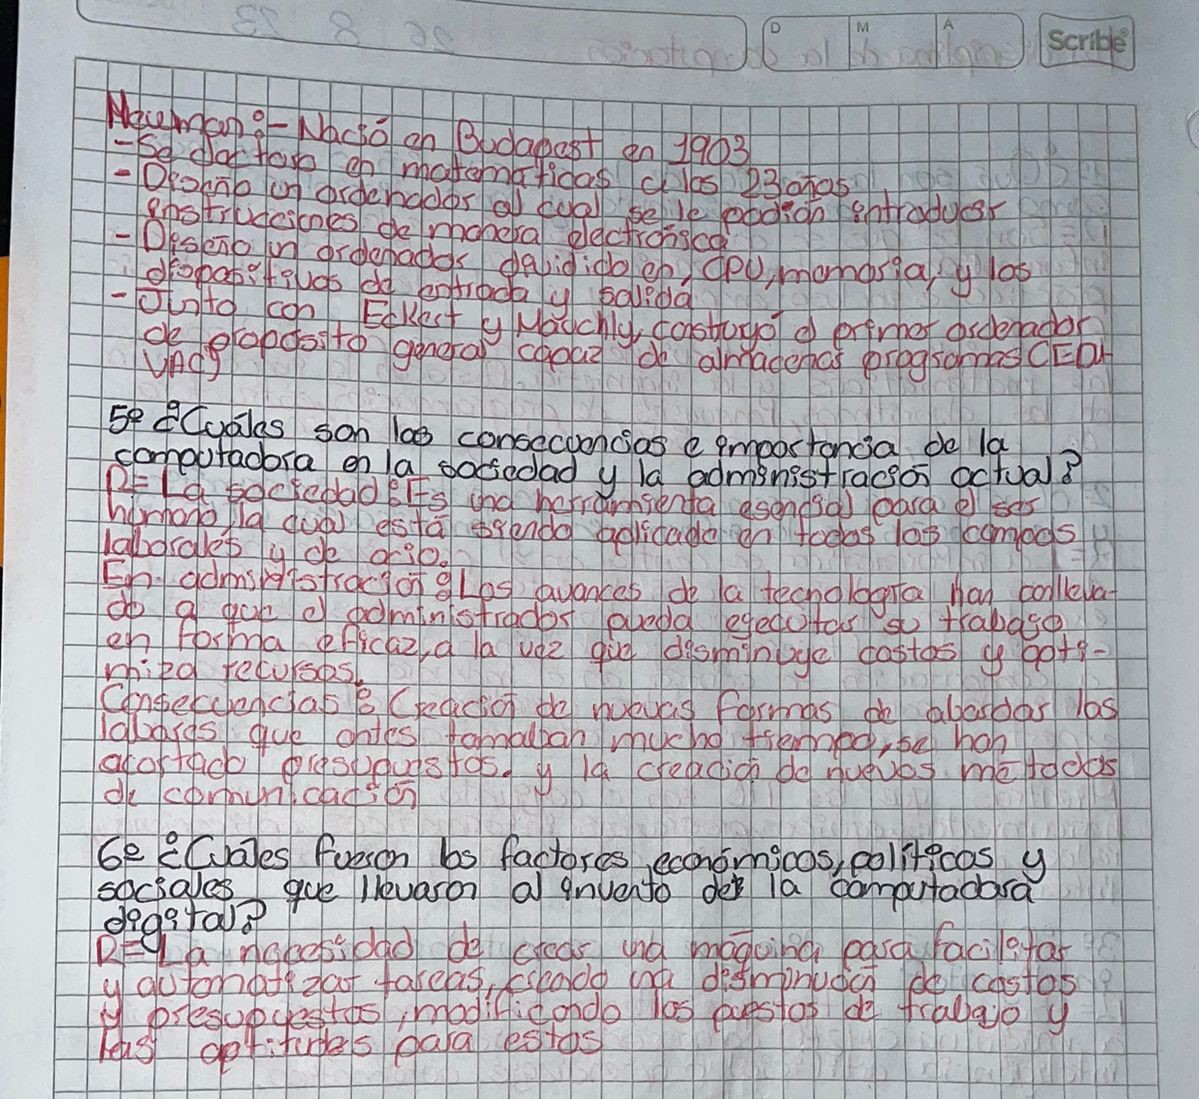 D M A Scribe
Neuman:- Nació en Budapest en 1903
- Se doctoro en matematicas a los 23 años
- Diseño un ordenador al cual se le podian introducir
instrucciones de manera electronica
- Diseño un ordenador dividido en, CPU, memoria, y los
dispositivos de entrada y salida
- Junto con Eckert y Mauchly, costruyó el primer ordenador
de proposito general capaz de almacenar programas (ED
VAC)
5º ¿Cuáles son las consecuencias e importancia de la
computadora en la sociedad y la administración actual?
R= La sociedad: Es una herramienta esencial para el ser
humano, la cual está siendo aplicada en todos los campos
laborales y de ocio.
En administración: Los avances de la tecnología han conlleva-
do a que el administrador pueda ejecutar su trabajo
en forma eficaz, a la vez que disminuye costos y opti-
miza recursos.
Consecuencias: Creación de nuevas formas de abordar las
labores que antes tomaban mucho tiempo, se han
acortado presupuestos. y la creación de nuevos metodos
de comunicación
6º ¿Cuáles fueron los factores económicos, políticos y
sociales que llevaron al invento de la computadora
digital?
R= La necesidad de crear una maquina para facilitar
y automatizar tareas, creado una disminución de costos
y presupuestos, modificando los puestos de trabajo y
las aptitudes para estos